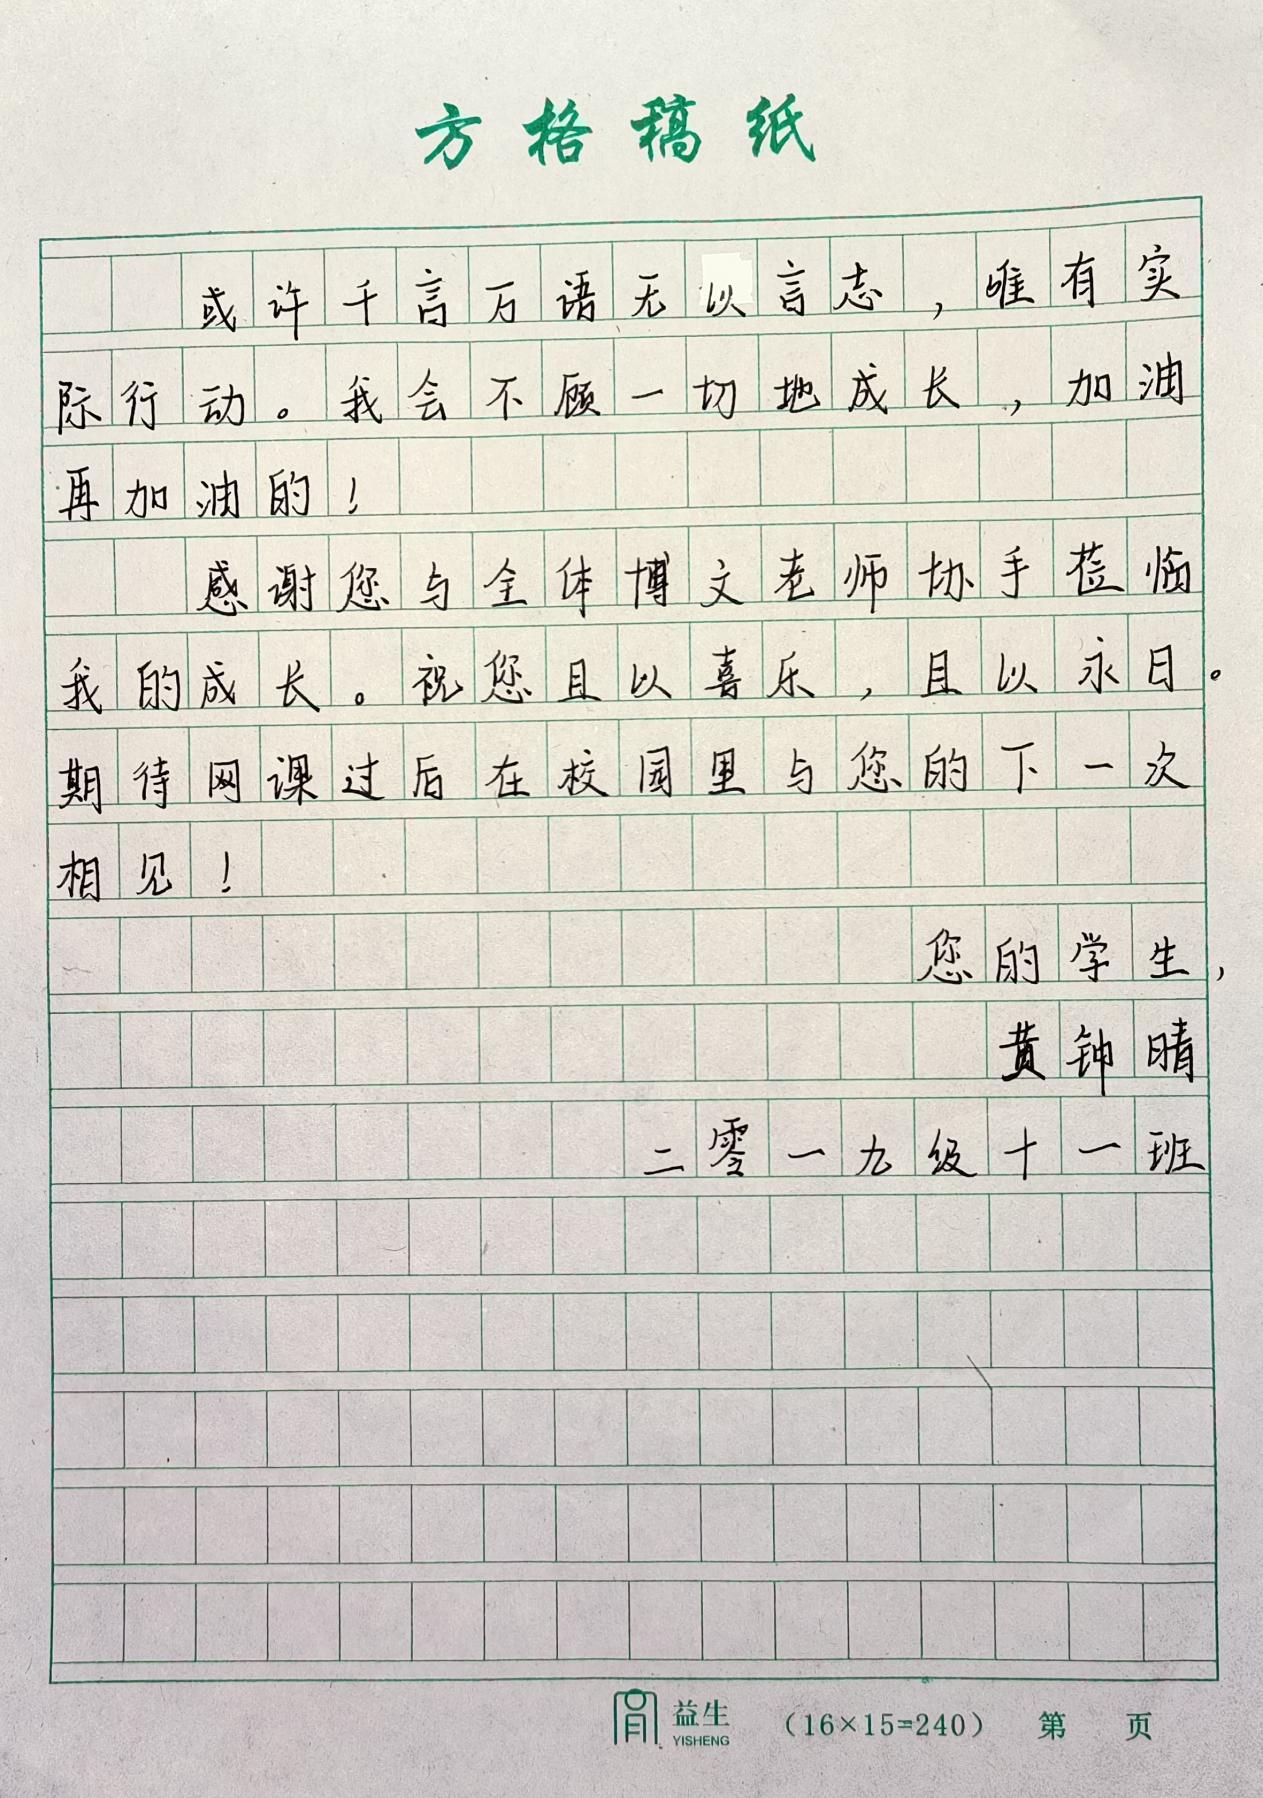 方格稿纸
或许千言万语无以言志，唯有实
际行动。我会不顾一切地成长，加油
再加油的！
感谢您与全体博文老师协手莅临
我的成长。祝您且以喜乐，且以永日。
期待网课过后在校园里与您的下一次
相见！
您的学生，
黄钟晴
二零一九级十一班
益生
YISHENG
（16×15=240） 第 页